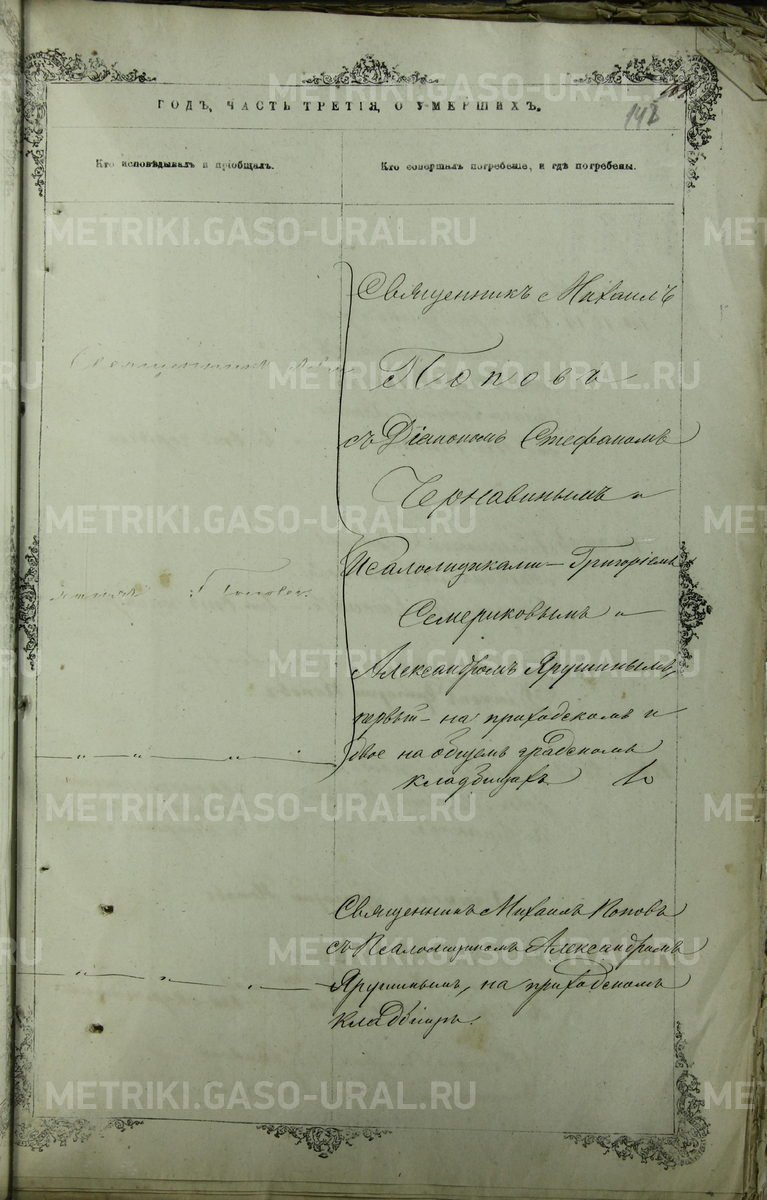 ГОДЪ, ЧАСТЬ ТРЕТІЯ, О УМЕРШИХЪ.
142
Кто исповѣдывалъ и пріобщалъ.
Кто совершалъ погребеніе, и гдѣ погребены.
Священникъ
Поповъ
Священникъ Михаилъ
Поповъ
съ Діакономъ Стефаномъ
Чернавинымъ и
Псаломщиками Григоріемъ
Семериковымъ и
Александромъ Ярушинымъ,
первый на приходскомъ и
двое на общемъ градскомъ
кладбищахъ.
Священникъ Михаилъ Поповъ
съ Псаломщикомъ Александромъ
Ярушинымъ, на приходскомъ
кладбищѣ.
METRIKI.GASO-URAL.RU